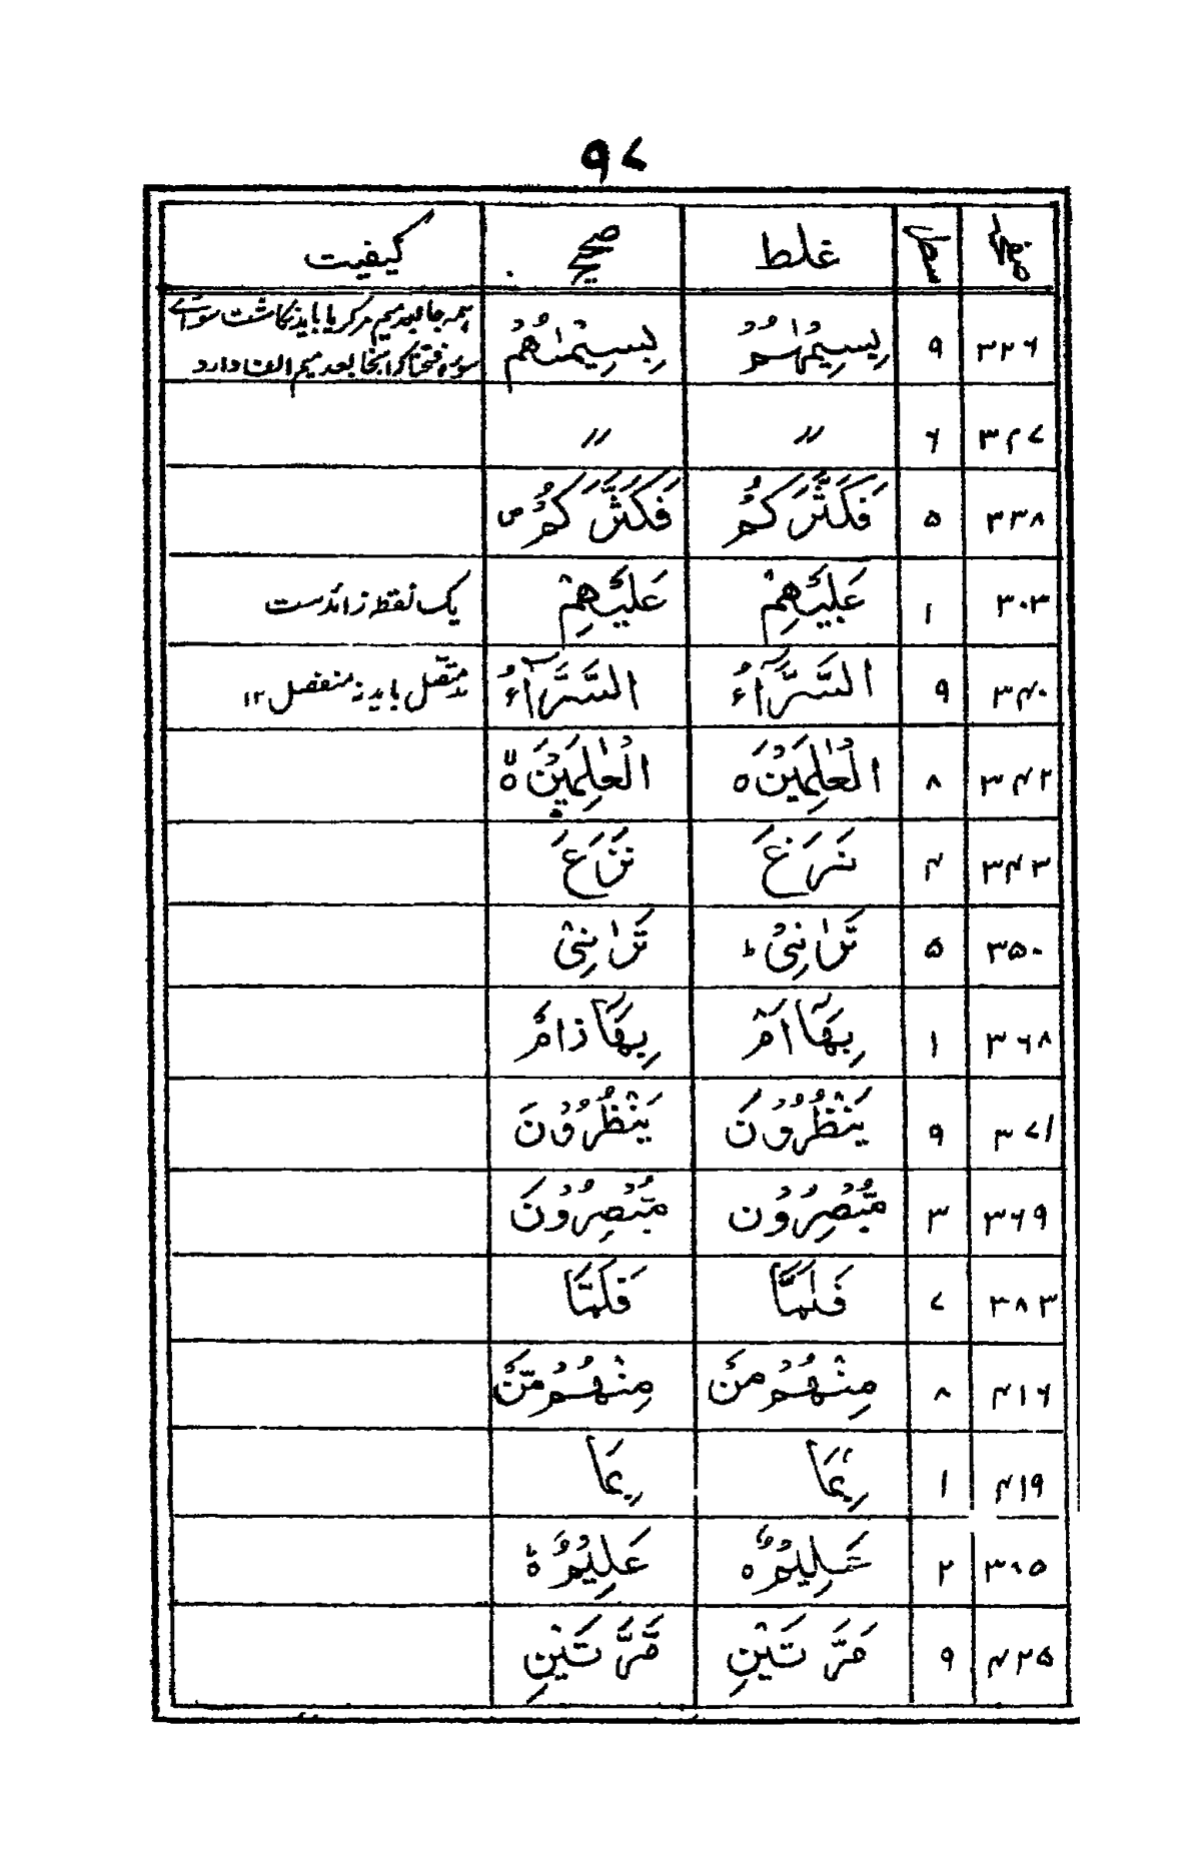 ۹۷
صفحہ سطر غلط صحیح کیفیت
۳۲۶ ۹ بِسِيْمٰهُمْ بِسِيْمٰىهُمْ ہمہ جا بعد میم مرکز یا باید نگاشت سوائے
سورہ فتحنا کہ اینجا بعد میم الف دارد
۳۲۷ ۶ // //
۳۳۸ ۵ فَكَثَّرَكُمْ فَكَثَّرَكُمْ ص
۳۰۳ ۱ عَلَيْهِمْ عَلَيْهِمْ یک نقطہ زائدست
۳۴۰ ۹ السَّرَّآءُ السَّرَّآءُ متصل باید نہ منفصل ۱۲
۳۴۲ ۸ الْعٰلَمِيْنَ ه الْعٰلَمِيْنَ ه
۳۴۳ ۴ نَرَغَ نَزَعَ
۳۵۰ ۵ تَرٰانِیْ ط تَرٰانِیْ
۳۶۸ ۱ بِهَآ اَمْ بِهَآ ز اَمْ
۳۷۱ ۹ يَنْظُرُوْنَ يَنْظُرُوْنَ
۳۶۹ ۳ مُّبْصِرُوْن مُّبْصِرُوْنَ
۳۸۳ ۷ فَلَمَّا فَلَمَّا
۴۱۶ ۸ مِنْهُمْ مَنْ مِنْهُمْ مَّنْ
۴۱۹ ۱ بِمَا بِمَا
۳۰۵ ۲ عَلِيْمٌ ه عَلِيْمٌ ه
۴۲۵ ۹ مَرَّتَيْنِ مَّرَّتَيْنِ